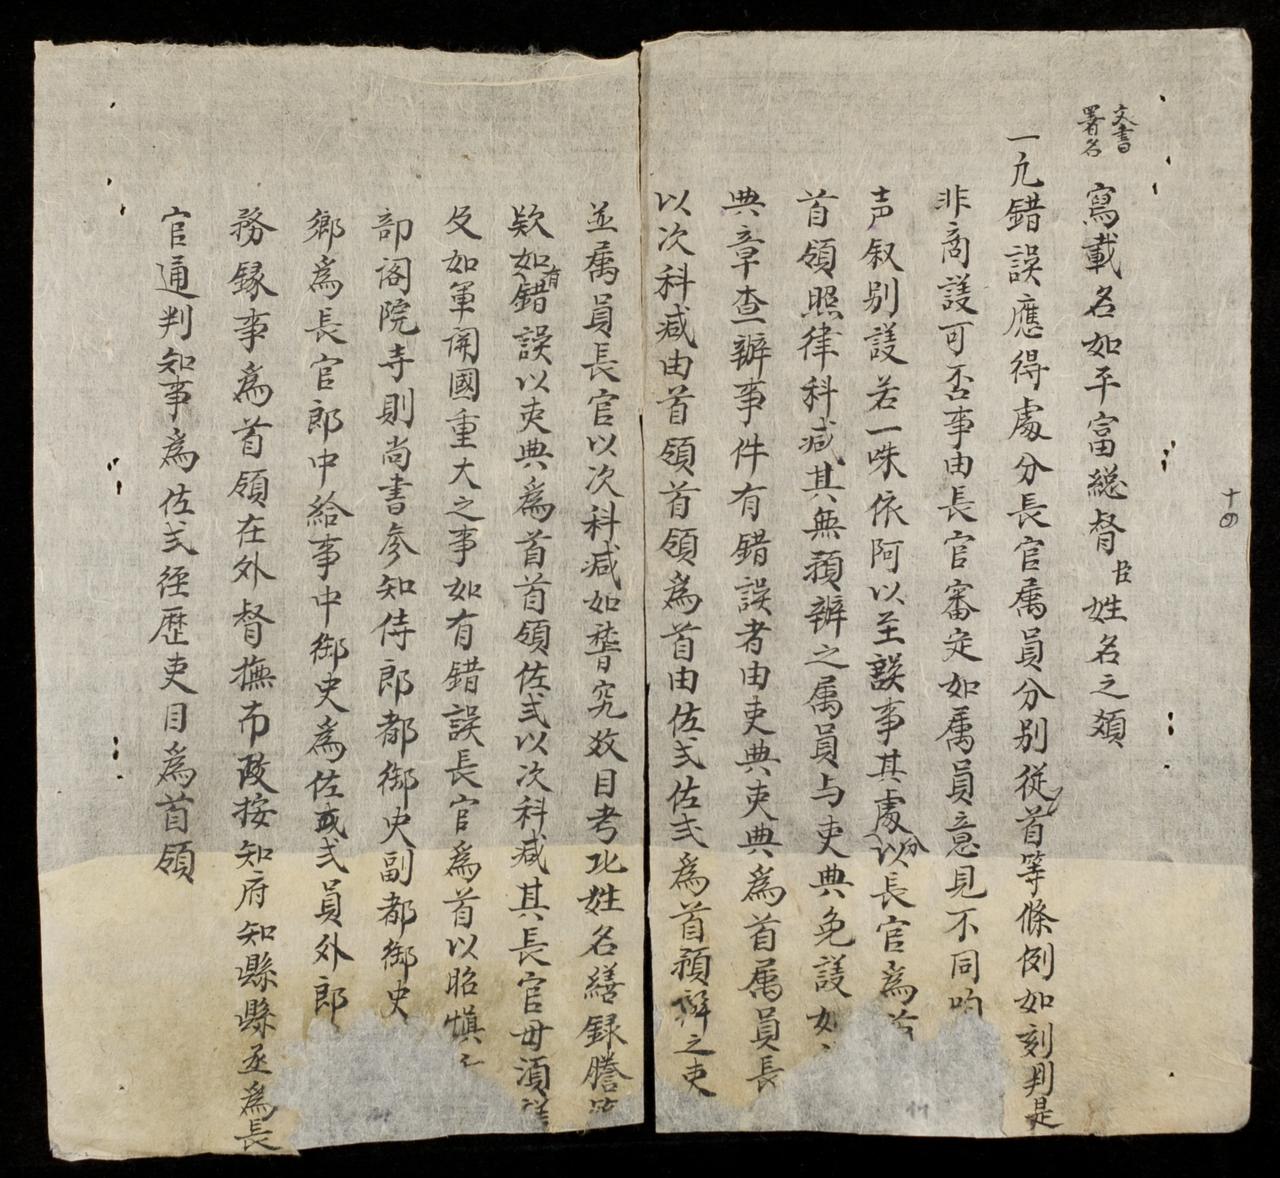 十四
文書
署名
寫載名如平富総督臣姓名之類
一凢錯誤應得處分長官属員分别從首等條例如刻判是
非商議可否事由長官審定如属員意見不同
声叙别議若一味依阿以至誤事其處分以長官為首
首領照律科减其無預辦之属員与吏典免議如
典章查辦事件有錯誤者由吏典吏典為首属員長
以次科减由首領首領為首由佐弍佐弍為首預辦之吏
並属員長官以次科减如 究效目考北姓名繕録謄
欵如有錯誤以吏典為首首領佐弍以次科减其長官毋須
及如軍開國重大之事如有錯誤長官為首以昭慎
部閣院寺則尚書参知侍郎都御史副都御史
鄉為長官郎中給事中御史為佐弍員外郎
務録事為首領在外督撫布政按知府知縣縣丞為長
官通判知事為佐弍経歷吏目為首領